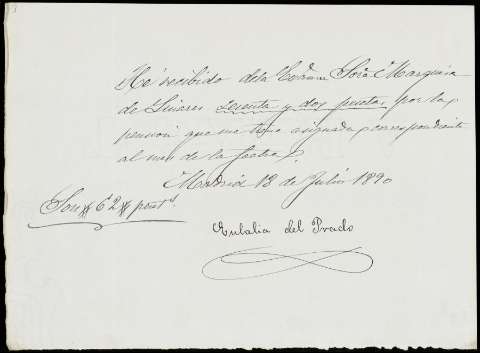 He recibido de la Excma Sorã Marquesa
de Linares sesenta y dos pesetas, por la
pension que me tiene asignada, correspondiente
al mes de la fecha.
Madrid 13 de Julio 1890
Son # 62 # ptas
Eulalia del Prado